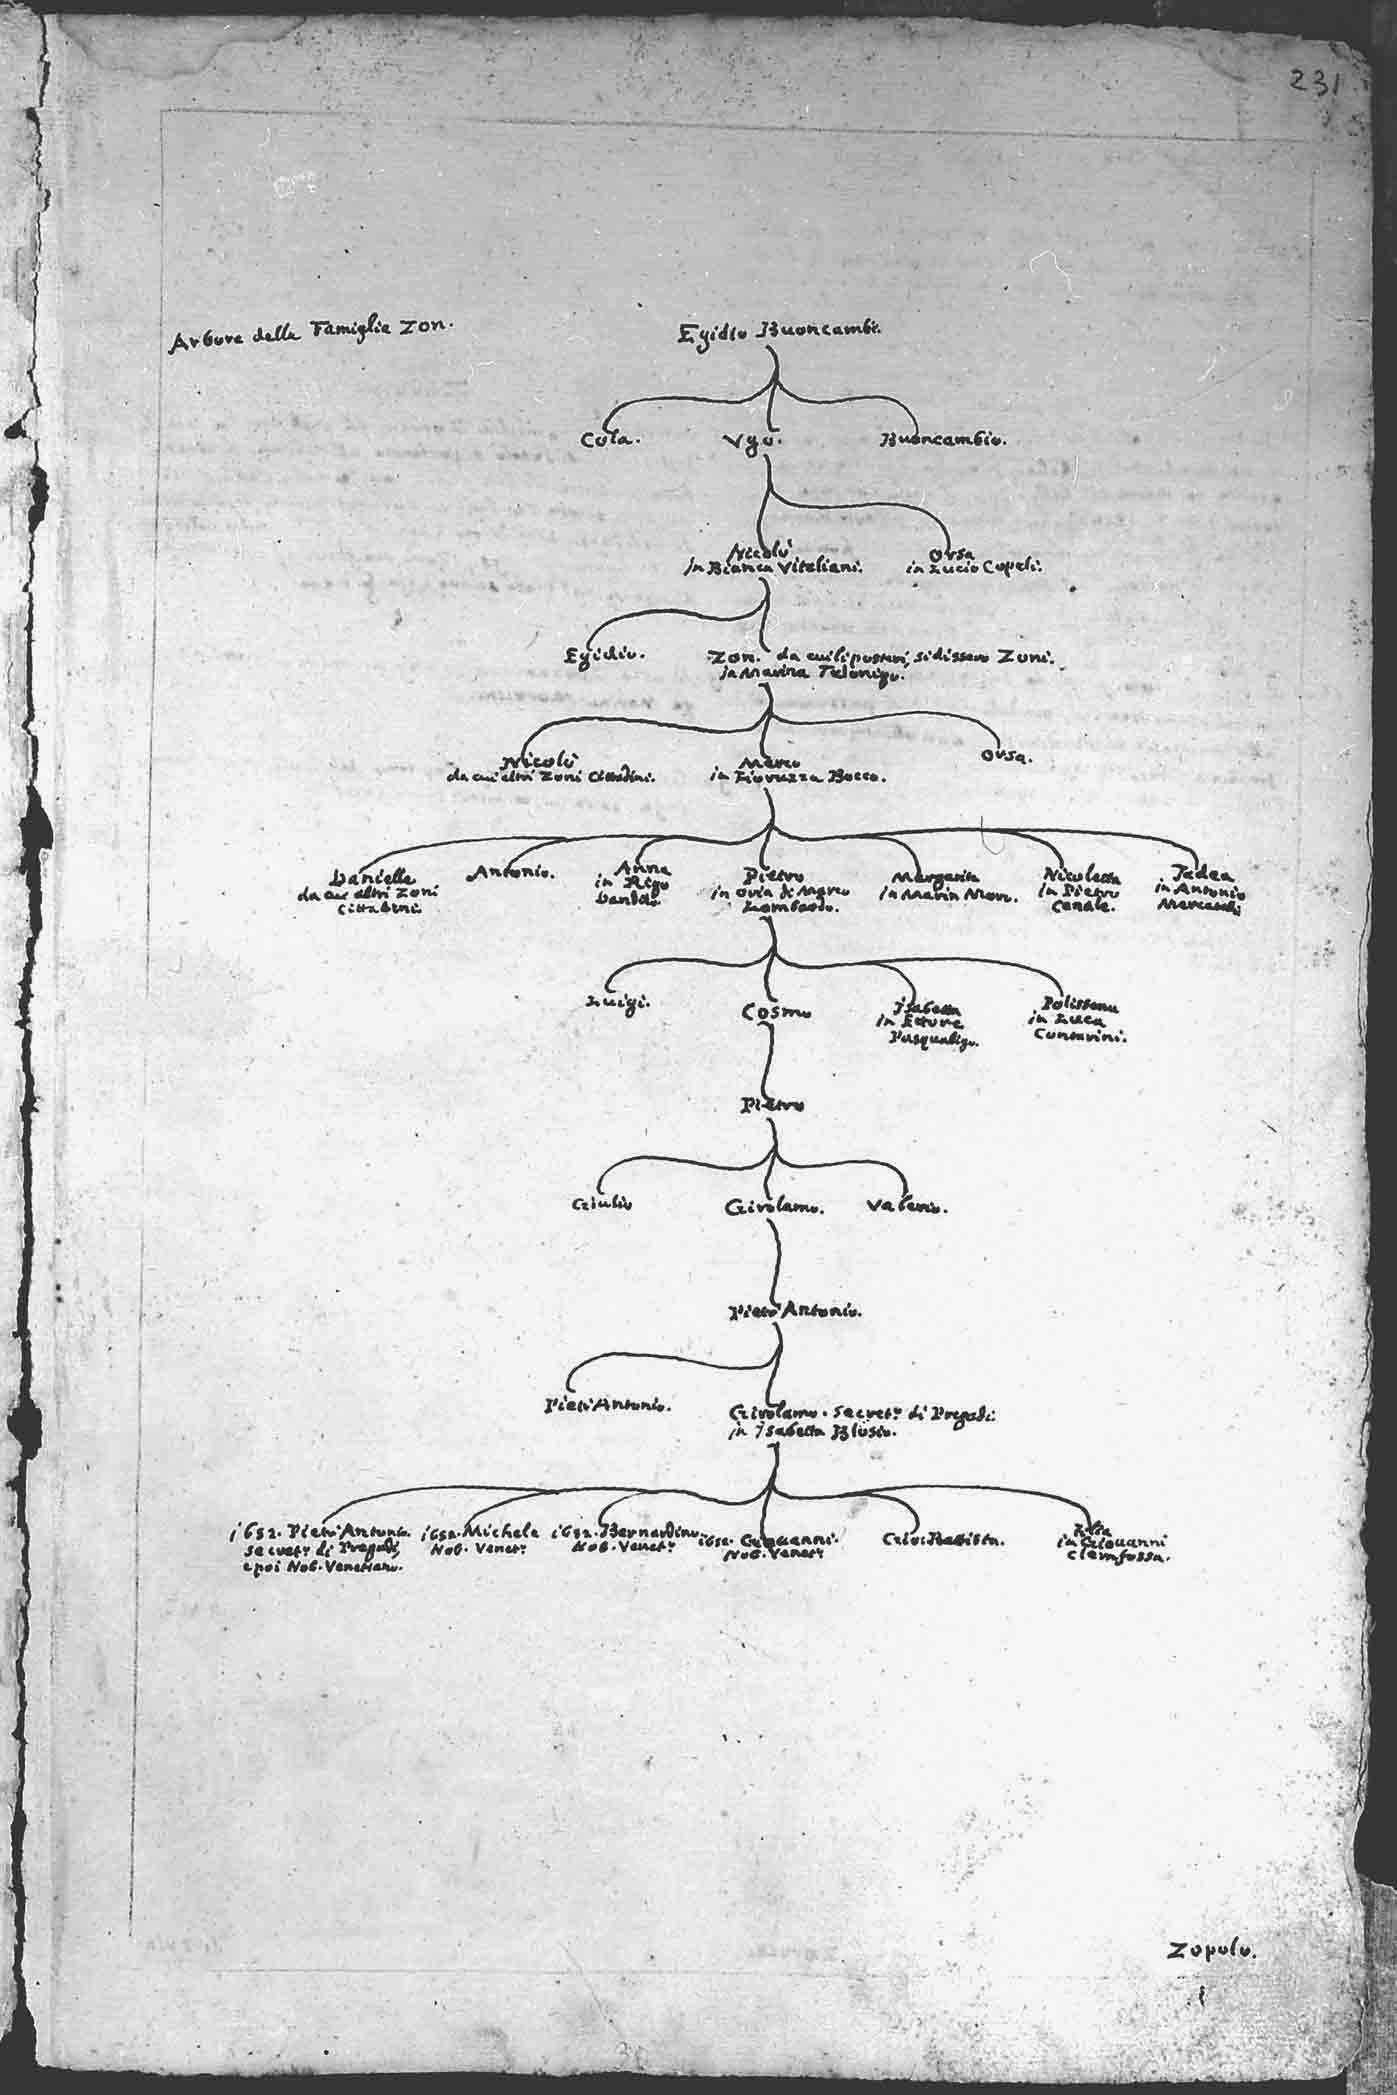 231
Arbore della Famiglia Zon.
Egidio Buoncambi.
Cola. Vgo. Buoncambio.
Nicolò
in Bianca Viteliani.
Orsa
in Lucio Capeli.
Egidio.
Zon. da cui li posteri, si dissero Zoni.
in Marina
Nicolò
da cui altri Zoni Cittadini.
Marco
in Fioruzza Bocco.
Orsa.
Danielle
da cui altri Zoni
Cittadini.
Antonio.
Anna
in Rigo
Dandolo.
Pietro
in Oria di Marco
Lombardo.
Margarita
in Marin Moro.
Nicoletta
in Pietro
Canale.
Tadea
in Antonio
Luigi.
Cosmo
Isabetta
in Ettore
Pasqualigo.
Polissena
in Luca
Contarini.
Pietro
Giulio
Girolamo.
Valerio.
Pietr'Antonio.
Pietr'Antonio.
Girolamo. Secret.º di Pregadi
in Isabetta
1652. Pietr'Antonio.
Secret.º di Pregadi,
e poi Nob. Venetiano.
1652. Michele
Nob. Venet.º
1652. Bernardino
Nob. Venet.º
1652. Giovanni.
Nob. Venet.º
Gio: Battista.
in Giovanni
Zopolo.